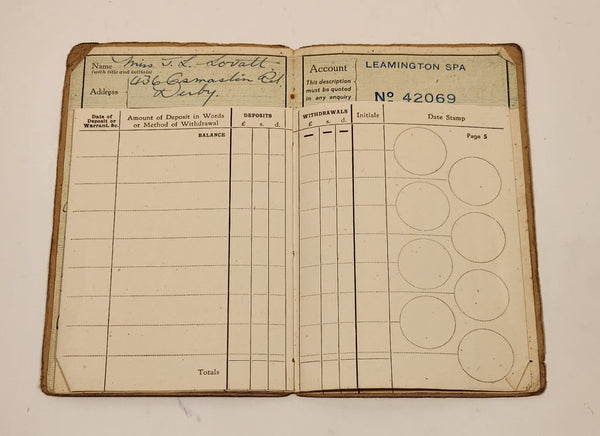 Name Miss J. L. Lovatt
(with title and initials)
Address 436 Osmaston Rd.
Derby.
Account
This description
must be quoted
in any enquiry
LEAMINGTON SPA
No 42069
Date of
Deposit or
Warrant, &c.
Amount of Deposit in Words
or Method of Withdrawal
DEPOSITS
£ s. d.
WITHDRAWALS
£ s. d.
Initials
Date Stamp
BALANCE
— — —
Page 5
Totals